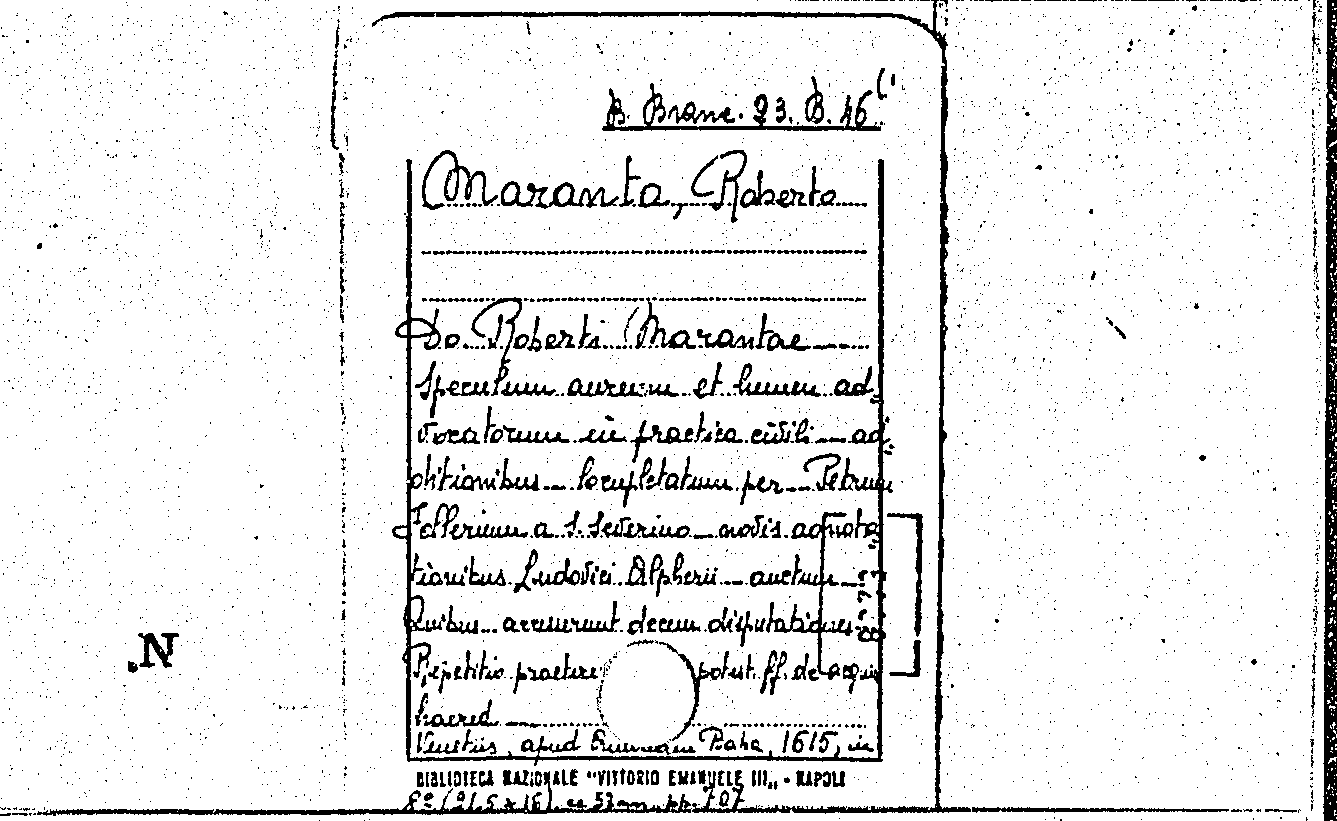 B. Branc. 23. B. 46
Maranta, Roberto
Do. Roberti Marantae
Speculum aureum et lumen ad„
vocatorum in practica civili — ad„
ditionibus locupletatum per Petrum
Follerium a S. Severino — novis adnota„
tionibus Ludovici Alpherii — auctum —
Quibus accesserunt decem disputationes
Repetitio praetere potest ff. de acqui
haered
Venetiis, apud Baba, 1615, in
BIBLIOTECA NAZIONALE "VITTORIO EMANUELE III„ - NAPOLI
8° (21,5 x 16) cc 53 nn. pp. 707
N.